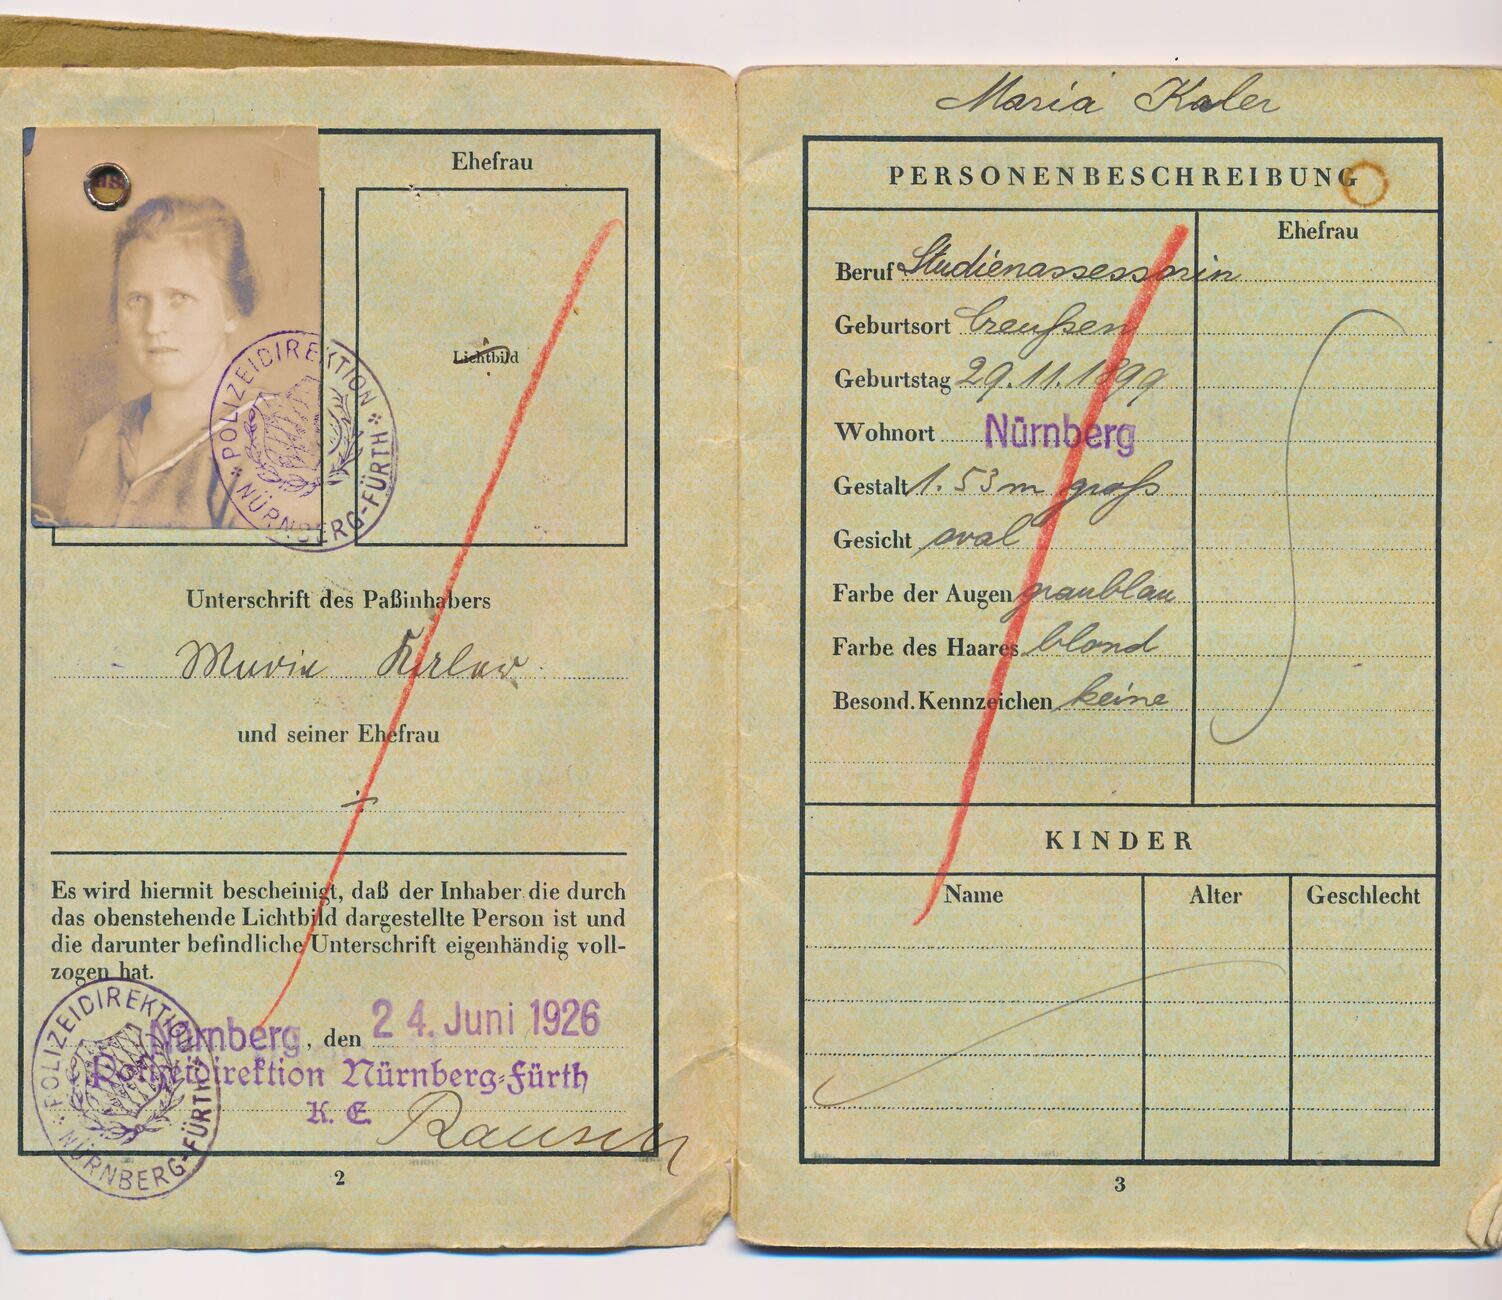 Ehefrau
Lichtbild
POLIZEIDIREKTION
NÜRNBERG-FÜRTH
Unterschrift des Paßinhabers
Maria
und seiner Ehefrau
Es wird hiermit bescheinigt, daß der Inhaber die durch
das obenstehende Lichtbild dargestellte Person ist und
die darunter befindliche Unterschrift eigenhändig voll-
zogen hat.
Nürnberg, den 24. Juni 1926
Polizeidirektion Nürnberg-Fürth
K. E.
POLIZEIDIREKTION
NÜRNBERG-FÜRTH
2
Maria
PERSONENBESCHREIBUNG
Ehefrau
Beruf Studienassessorin
Geburtsort Creußen
Geburtstag 29.11.1899
Wohnort Nürnberg
Gestalt 1.53 m groß
Gesicht oval
Farbe der Augen graublau
Farbe des Haares blond
Besond. Kennzeichen keine
KINDER
Name Alter Geschlecht
3